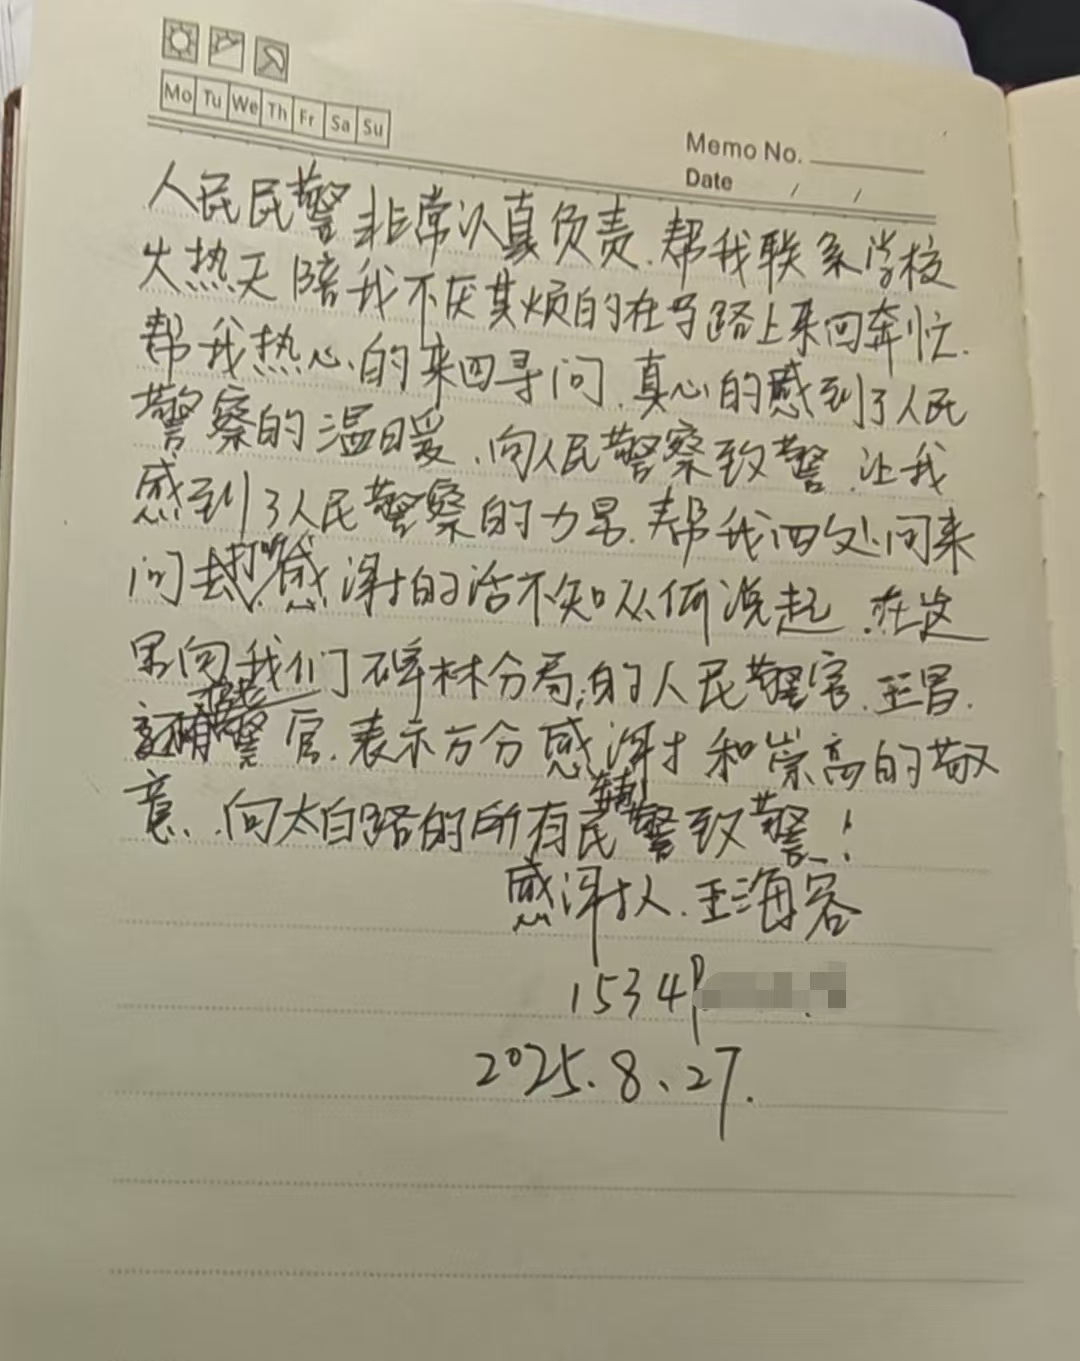 Mo Tu We Th Fr Sa Su
Memo No.
Date / /
人民民警非常认真负责.帮我联系学校
火热天陪我不厌其烦的在马路上来回奔忙.
帮我热心的来回寻问.真心的感到了人民
警察的温暖.向人民警察致警.让我
感到了人民警察的力量.帮我四处问来
问去.感谢的话不知从何说起.在这
里向我们碑林分局的人民警官.王昌.
警官.表示万分感谢和崇高的敬
意..向太白路的所有民警致警!
感谢人.王海容
1534
2025.8.27.